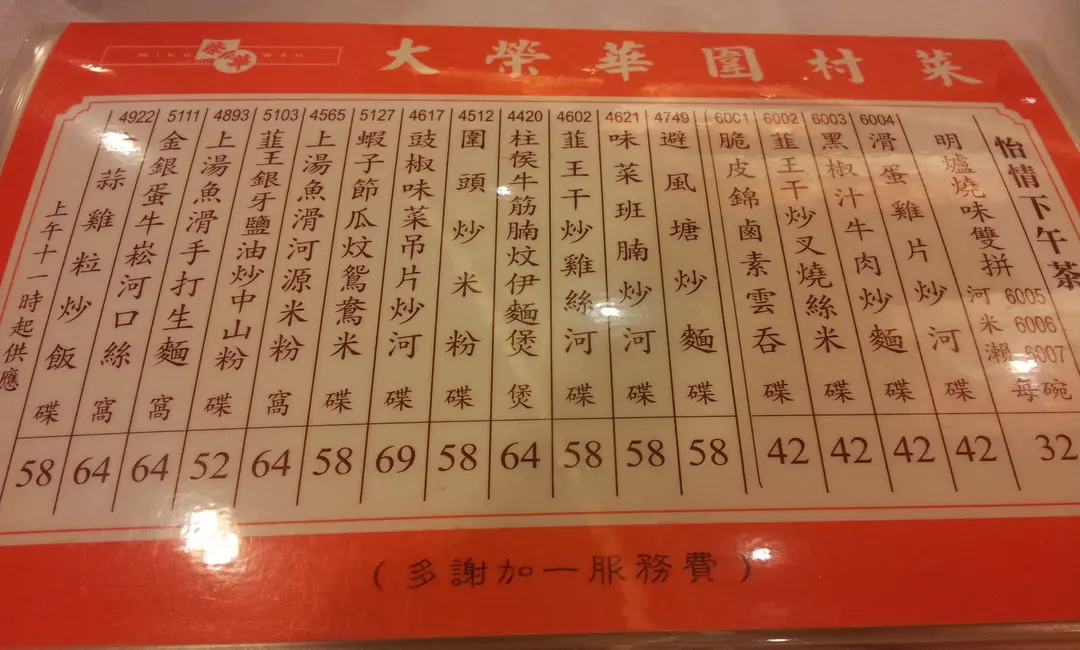 WING WAH
大榮華圍村菜
怡情下午茶
明爐燒味雙拼 河 6005 米 6006 瀨 6007 每碗 32
6004 滑蛋雞片炒河 碟 42
6003 黑椒汁牛肉炒麵 碟 42
6002 韮王干炒叉燒絲米 碟 42
6001 脆皮錦鹵素雲吞 碟 42
4749 避風塘炒麵 碟 58
4621 味菜班腩炒河 碟 58
4602 韮王干炒雞絲河 碟 58
4420 柱侯牛筋腩炆伊麵煲 煲 64
4512 圍頭炒米粉 碟 58
4617 豉椒味菜吊片炒河 碟 69
5127 蝦子節瓜炆鴛鴦米 碟 58
4565 上湯魚滑河源米粉 窩 64
5103 韮王銀牙鹽油炒中山粉 碟 52
4893 上湯魚滑手打生麵 窩 64
5111 金銀蛋牛崧河口絲 窩 64
4922 蒜雞粒炒飯 碟 58
上午十一時起供應
(多謝加一服務費)